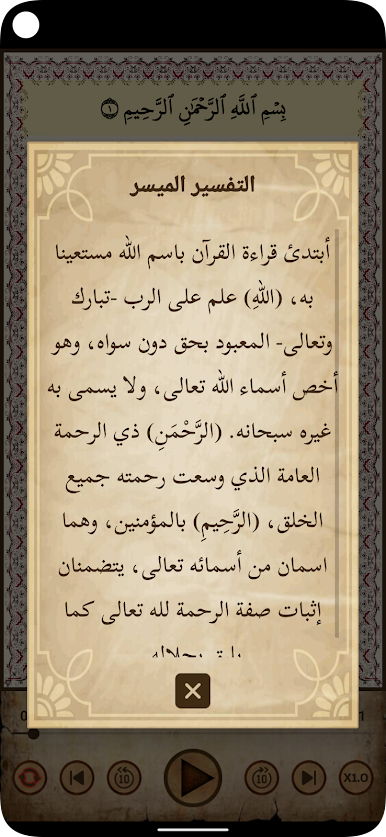 بِسْمِ ٱللَّهِ ٱلرَّحْمَٰنِ ٱلرَّحِيمِ ١
التفسير الميسر
أبتدئ قراءة القرآن باسم الله مستعينا
به، (اللهِ) علم على الرب -تبارك
وتعالى- المعبود بحق دون سواه، وهو
أخص أسماء الله تعالى، ولا يسمى به
غيره سبحانه. (الرَّحْمَنِ) ذي الرحمة
العامة الذي وسعت رحمته جميع
الخلق، (الرَّحِيمِ) بالمؤمنين، وهما
اسمان من أسمائه تعالى، يتضمنان
إثبات صفة الرحمة لله تعالى كما
10
10
X1.0